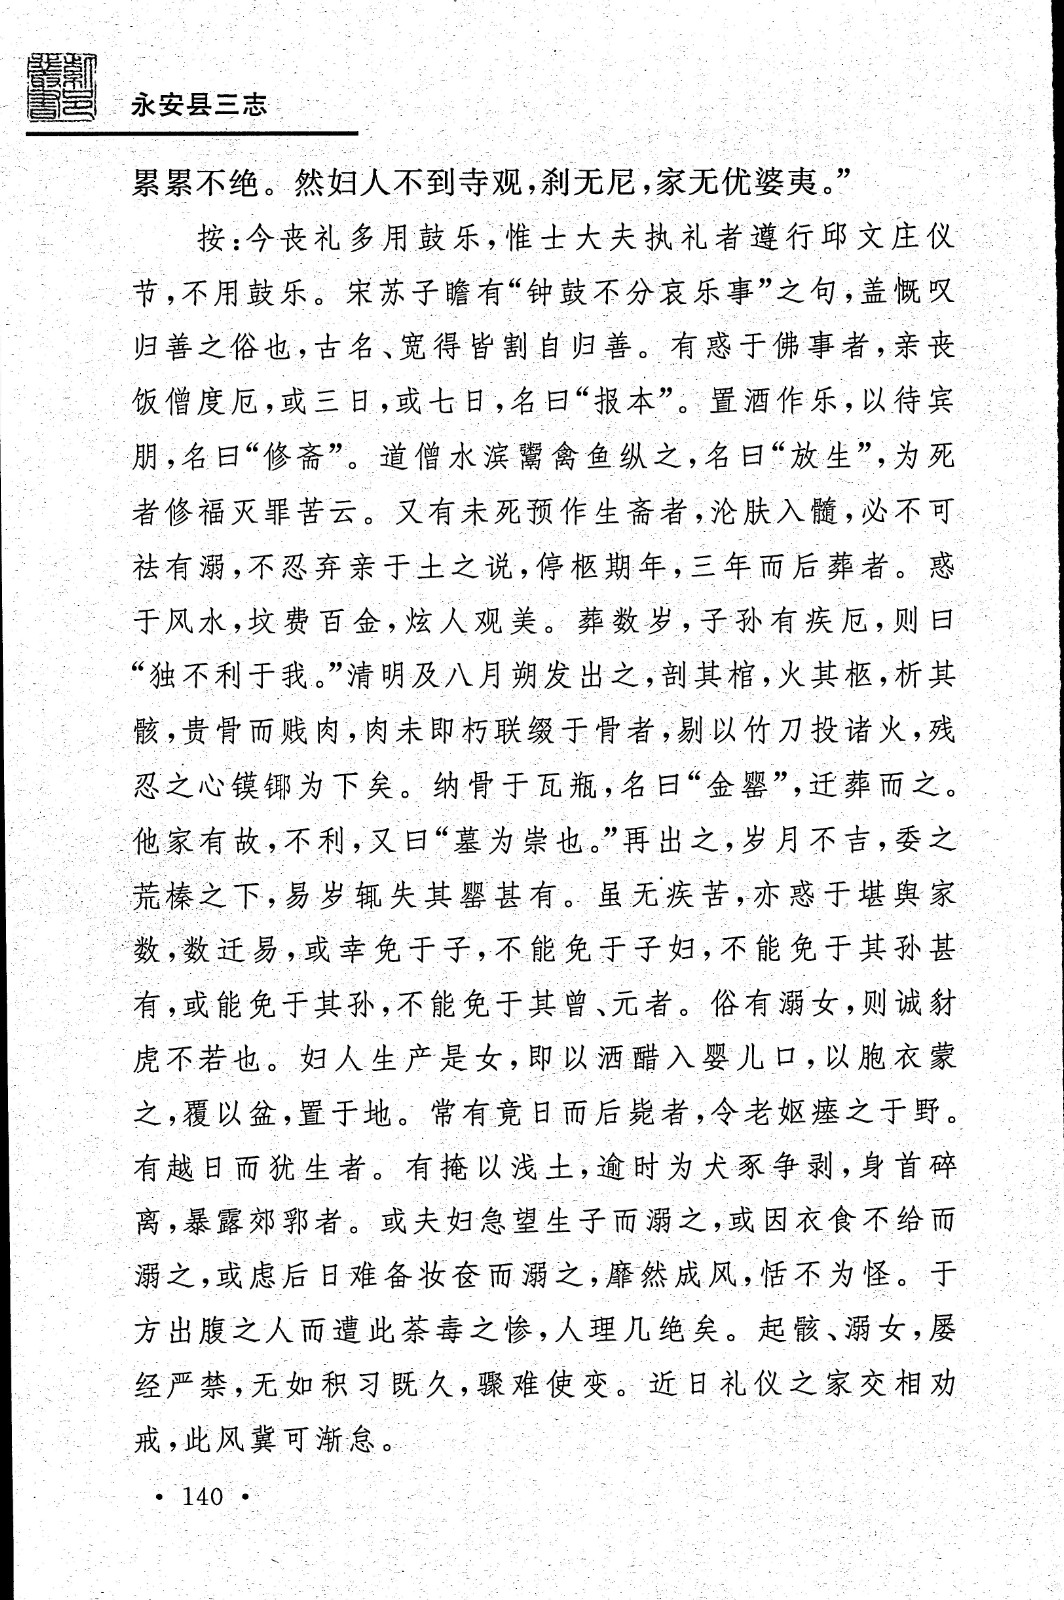 永安县三志
累累不绝。然妇人不到寺观,刹无尼,家无优婆夷。”
按:今丧礼多用鼓乐,惟士大夫执礼者遵行邱文庄仪
节,不用鼓乐。宋苏子瞻有“钟鼓不分哀乐事”之句,盖慨叹
归善之俗也,古名、宽得皆割自归善。有惑于佛事者,亲丧
饭僧度厄,或三日,或七日,名曰“报本”。置酒作乐,以待宾
朋,名曰“修斋”。道僧水滨鬻禽鱼纵之,名曰“放生”,为死
者修福灭罪苦云。又有未死预作生斋者,沦肤入髓,必不可
祛有溺,不忍弃亲于土之说,停柩期年,三年而后葬者。惑
于风水,坟费百金,炫人观美。葬数岁,子孙有疾厄,则曰
“独不利于我。”清明及八月朔发出之,剖其棺,火其柩,析其
骸,贵骨而贱肉,肉未即朽联缀于骨者,剔以竹刀投诸火,残
忍之心镆铘为下矣。纳骨于瓦瓶,名曰“金罂”,迁葬而之。
他家有故,不利,又曰“墓为崇也。”再出之,岁月不吉,委之
荒榛之下,易岁辄失其罂甚有。虽无疾苦,亦惑于堪舆家
数,数迁易,或幸免于子,不能免于子妇,不能免于其孙甚
有,或能免于其孙,不能免于其曾、元者。俗有溺女,则诚豺
虎不若也。妇人生产是女,即以洒醋入婴儿口,以胞衣蒙
之,覆以盆,置于地。常有竟日而后毙者,令老妪瘗之于野。
有越日而犹生者。有掩以浅土,逾时为犬豕争剥,身首碎
离,暴露郊郛者。或夫妇急望生子而溺之,或因衣食不给而
溺之,或虑后日难备妆奁而溺之,靡然成风,恬不为怪。于
方出腹之人而遭此荼毒之惨,人理几绝矣。起骸、溺女,屡
经严禁,无如积习既久,骤难使变。近日礼仪之家交相劝
戒,此风冀可渐怠。
· 140 ·